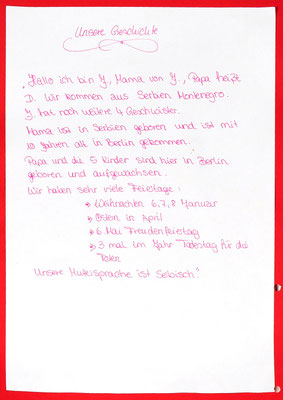 Unsere Geschichte
„Hallo ich bin Y, Mama von Y., Papa heißt
D. Wir kommen aus Serbien Montenegro.
Y. hat noch weitere 4 Geschwister.
Mama ist in Serbien geboren und ist mit
10 Jahren alt in Berlin gekommen.
Papa und die 5 Kinder sind hier in Berlin
geboren und aufgewachsen.
Wir haben sehr viele Feietage:
→ Weihnachten 6,7,8 Januar
→ Osten in April
→ 6 Mai Freudenfeietag
→ 3 mal im Jahr Todestag für die
Toten
Unsere Muttersprache ist Sebisch."